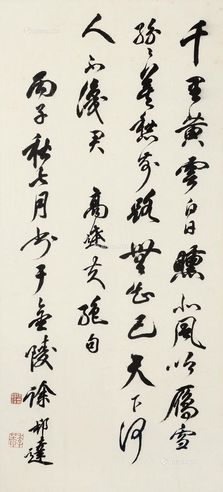 千里黃雲白日曛北風吹雁雪
紛〻莫愁前路無知己天下何
人不識君　高達夫絕句
丙子秋七月書于金陵徐邦達